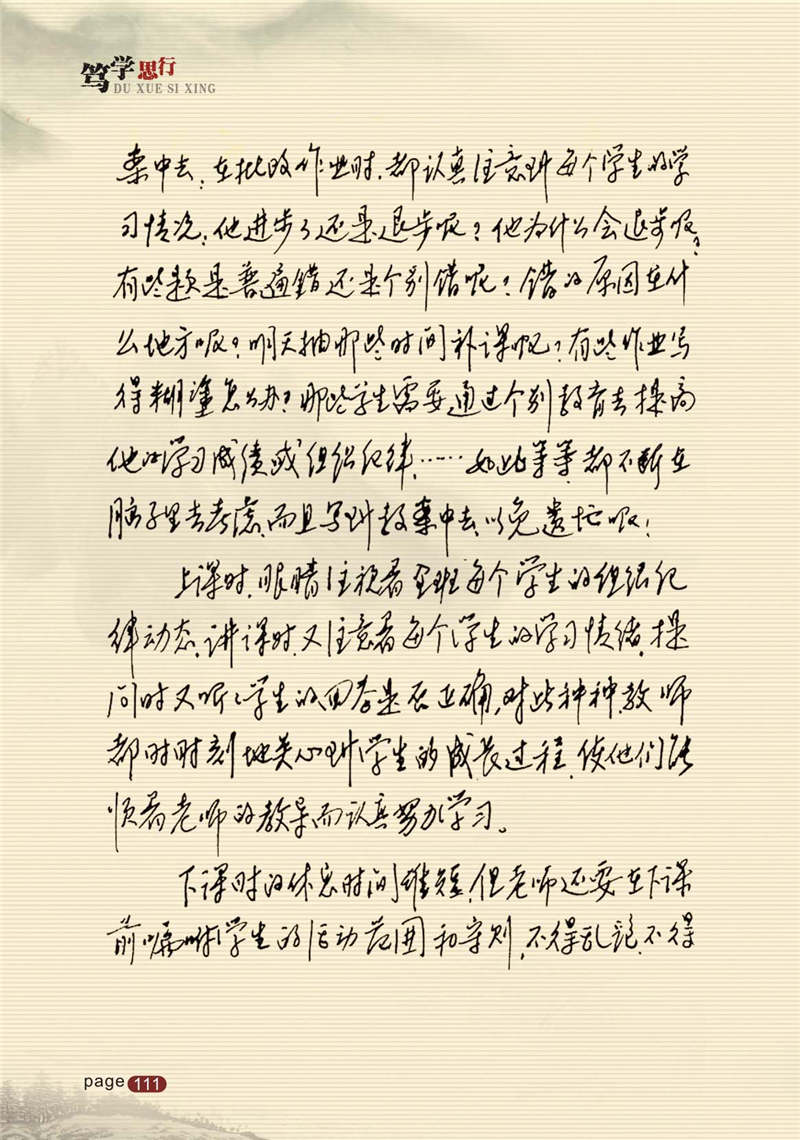 笃学思行
DU XUE SI XING
案中去；在批改作业时，都认真注意到每个学生的学
习情况：他进步了还是退步呢？他为什么会退步呢？
有些题是普遍错还是个别错呢？错的原因在什
么地方呢？明天抽哪些时间补课呢？有些作业写
得糊塗怎么办？哪些学生需要通过个别教育去提高
他的学习成绩或组织纪律，……如此等等，都不断在
脑子里去考虑，而且写到教案中去，以免遗忘呢！
上课时，眼睛注视着全班每个学生的组织纪
律动态，讲课时，又注意着每个学生的学习情绪，提
问时又听听学生的回答是否正确，对此种种，教师
都时时刻地关心到学生的成长过程，使他们能
顺着老师的教导而认真努力学习。
下课时的休息时间虽短，但老师还要在下课
前嘱咐学生的活动范围和守则，不得乱跑，不得
page 111